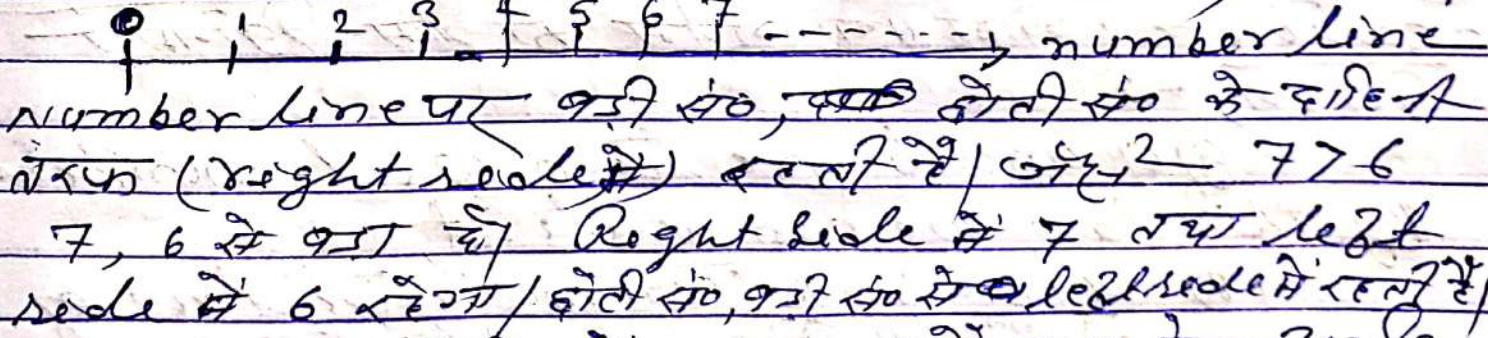 0 1 2 3 4 5 6 7 -------→ number line
Number line पर बड़ी सं०, छोटी सं० के दाहिनी
तरफ (right side में) रहती है। जैसे- 7>6
7, 6 से बड़ा है। Right side में 7 तथा left
side में 6 रहेगा। छोटी सं०, बड़ी सं० से left side में रहती है।